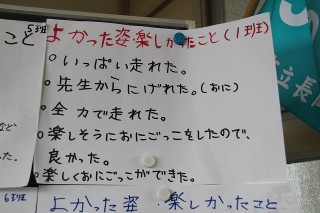 5班
こと
よかった姿・楽しかったこと(1班)
○いっぱい走れた。
○先生からにげれた。(おに)
○全力で走れた。
○楽しそうにおにごっこをしたので、
良かった。
○楽しくおにごっこができた。
など
た。
6班
よかった姿・楽しかったこと
立長